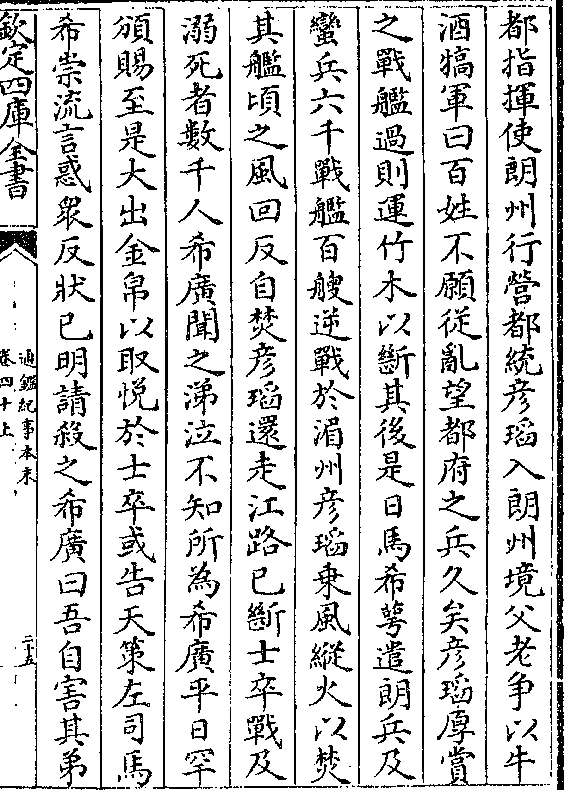 都指揮使朗州行營都統彦瑫入朗州境父老争以牛
酒犒軍曰百姓不願從亂望都府之兵久矣彦瑫厚賞
之戰艦過則運竹木以斷其後是日馬希萼遣朗兵及
蠻兵六千戰艦百艘逆戰於湄州彦瑫乗風縱火以焚
其艦頃之風回反自焚彦瑫還走江路已斷士卒戰及
溺死者數千人希廣聞之涕泣不知所為希廣平日罕
頒賜至是大出金帛以取悦於士卒或告天策左司馬
希崇流言惑衆反狀已明請殺之希廣曰吾自害其弟
欽定四庫全書
通鑑紀事本末
卷四十上
二十五